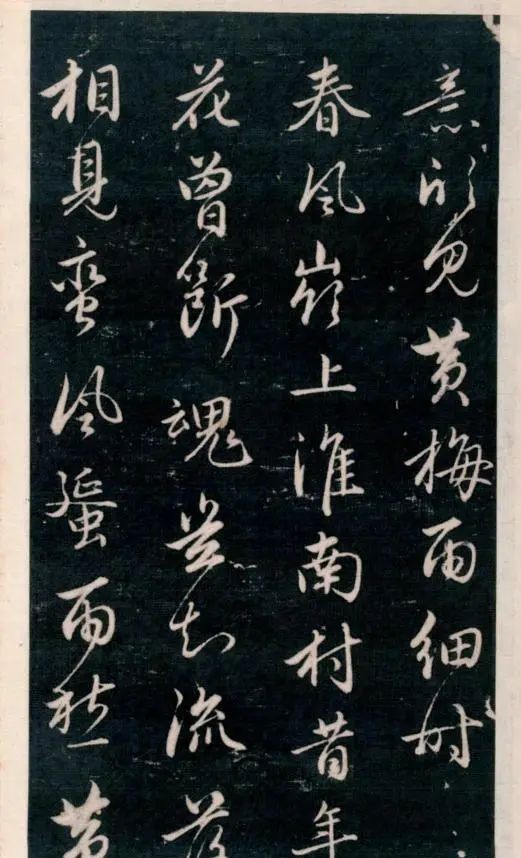 意見黄梅雨細時
春風嶺上淮南村昔年
花曾斷魂豈知流落
相見蠻風蜑雨愁黄